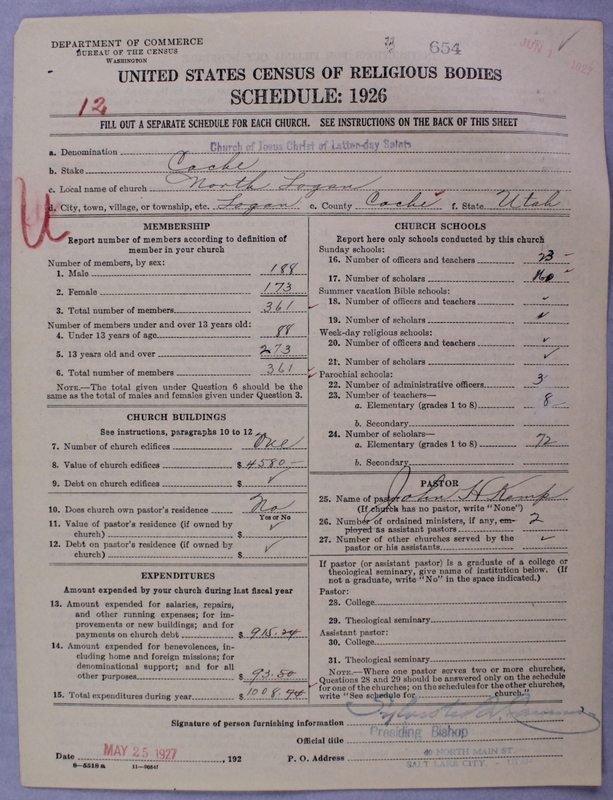 DEPARTMENT OF COMMERCE
BUREAU OF THE CENSUS
WASHINGTON
654
JUN 1 1927
UNITED STATES CENSUS OF RELIGIOUS BODIES
SCHEDULE: 1926
12
FILL OUT A SEPARATE SCHEDULE FOR EACH CHURCH. SEE INSTRUCTIONS ON THE BACK OF THIS SHEET
a. Denomination Church of Jesus Christ of Latter-day Saints
b. Stake Cache
c. Local name of church North Logan
d. City, town, village, or township, etc. Logan e. County Cache f. State Utah
MEMBERSHIP
Report number of members according to definition of
member in your church
Number of members, by sex:
1. Male 188
2. Female 173
3. Total number of members 361
Number of members under and over 13 years old:
4. Under 13 years of age 88
5. 13 years old and over 273
6. Total number of members 361
NOTE.—The total given under Question 6 should be
same as the total of males and females given under Question 3.
CHURCH BUILDINGS
See instructions, paragraphs 10 to 12
7. Number of church edifices One
8. Value of church edifices $ 4580—
9. Debt on church edifices $ ✓
10. Does church own pastor's residence No
Yes or No
11. Value of pastor's residence (if owned by
church) $ ✓
12. Debt on pastor's residence (if owned by
church) $ ✓
EXPENDITURES
Amount expended by your church during last fiscal year
13. Amount expended for salaries, repairs,
and other running expenses; for im-
provements or new buildings; and for
payments on church debt $ 915.24
14. Amount expended for benevolences, in-
cluding home and foreign missions; for
denominational support; and for all
other purposes $ 93.50
15. Total expenditures during year $ 1008.74
CHURCH SCHOOLS
Report here only schools conducted by this church
Sunday schools:
16. Number of officers and teachers 23
17. Number of scholars
Summer vacation Bible schools:
18. Number of officers and teachers ✓
19. Number of scholars ✓
Week-day religious schools:
20. Number of officers and teachers ✓
21. Number of scholars ✓
Parochial schools:
22. Number of administrative officers 3
23. Number of teachers—
a. Elementary (grades 1 to 8) 8
b. Secondary
24. Number of scholars—
a. Elementary (grades 1 to 8) 72
b. Secondary
PASTOR
25. Name of pastor John H Kemp
(If church has no pastor, write "None")
26. Number of ordained ministers, if any, em-
ployed as assistant pastors 2
27. Number of other churches served by the
pastor or his assistants ✓
If pastor (or assistant pastor) is a graduate of a college or
theological seminary, give name of institution below. (If
not a graduate, write "No" in the space indicated.)
Pastor:
28. College
29. Theological seminary
Assistant pastor:
30. College
31. Theological seminary
NOTE.—Where one pastor serves two or more churches,
Questions 28 and 29 should be answered only on the schedule
for one of the churches; on the schedules for the other churches,
write "See schedule for church."
Signature of person furnishing information
Official title Presiding Bishop
Date MAY 25 1927, 192 P. O. Address 40 NORTH MAIN ST.
SALT LAKE CITY
8—5518 a